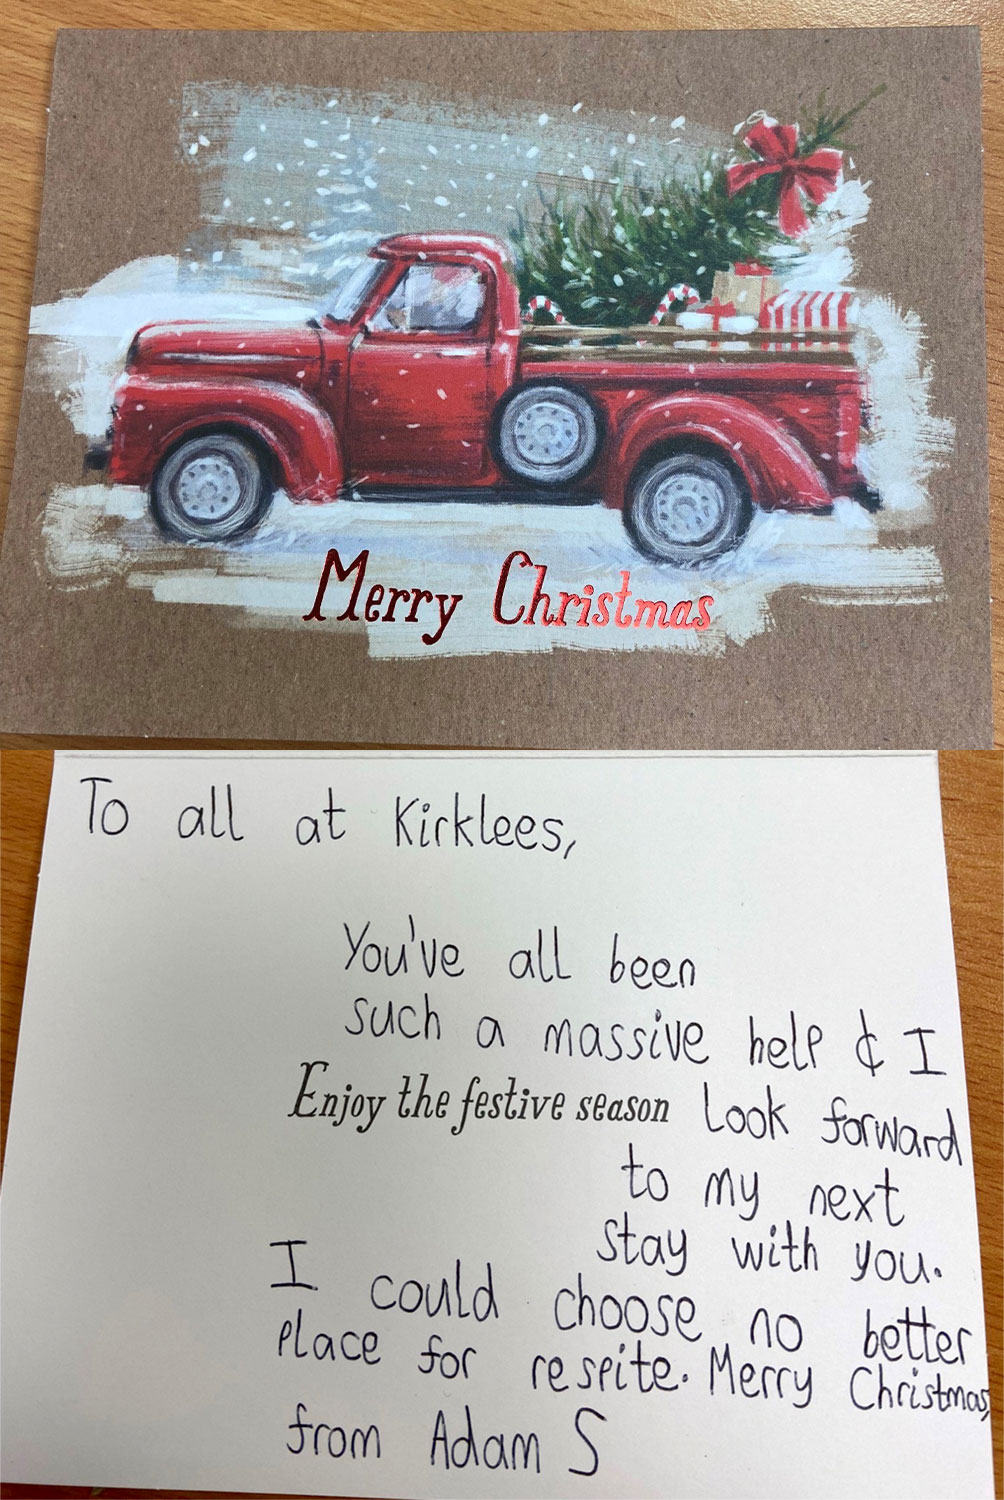 Merry Christmas
To all at Kirklees,
You've all been
such a massive help & I
Enjoy the festive season
Look forward
to my next
stay with you.
I could choose no better
place for respite. Merry Christmas,
from Adam S